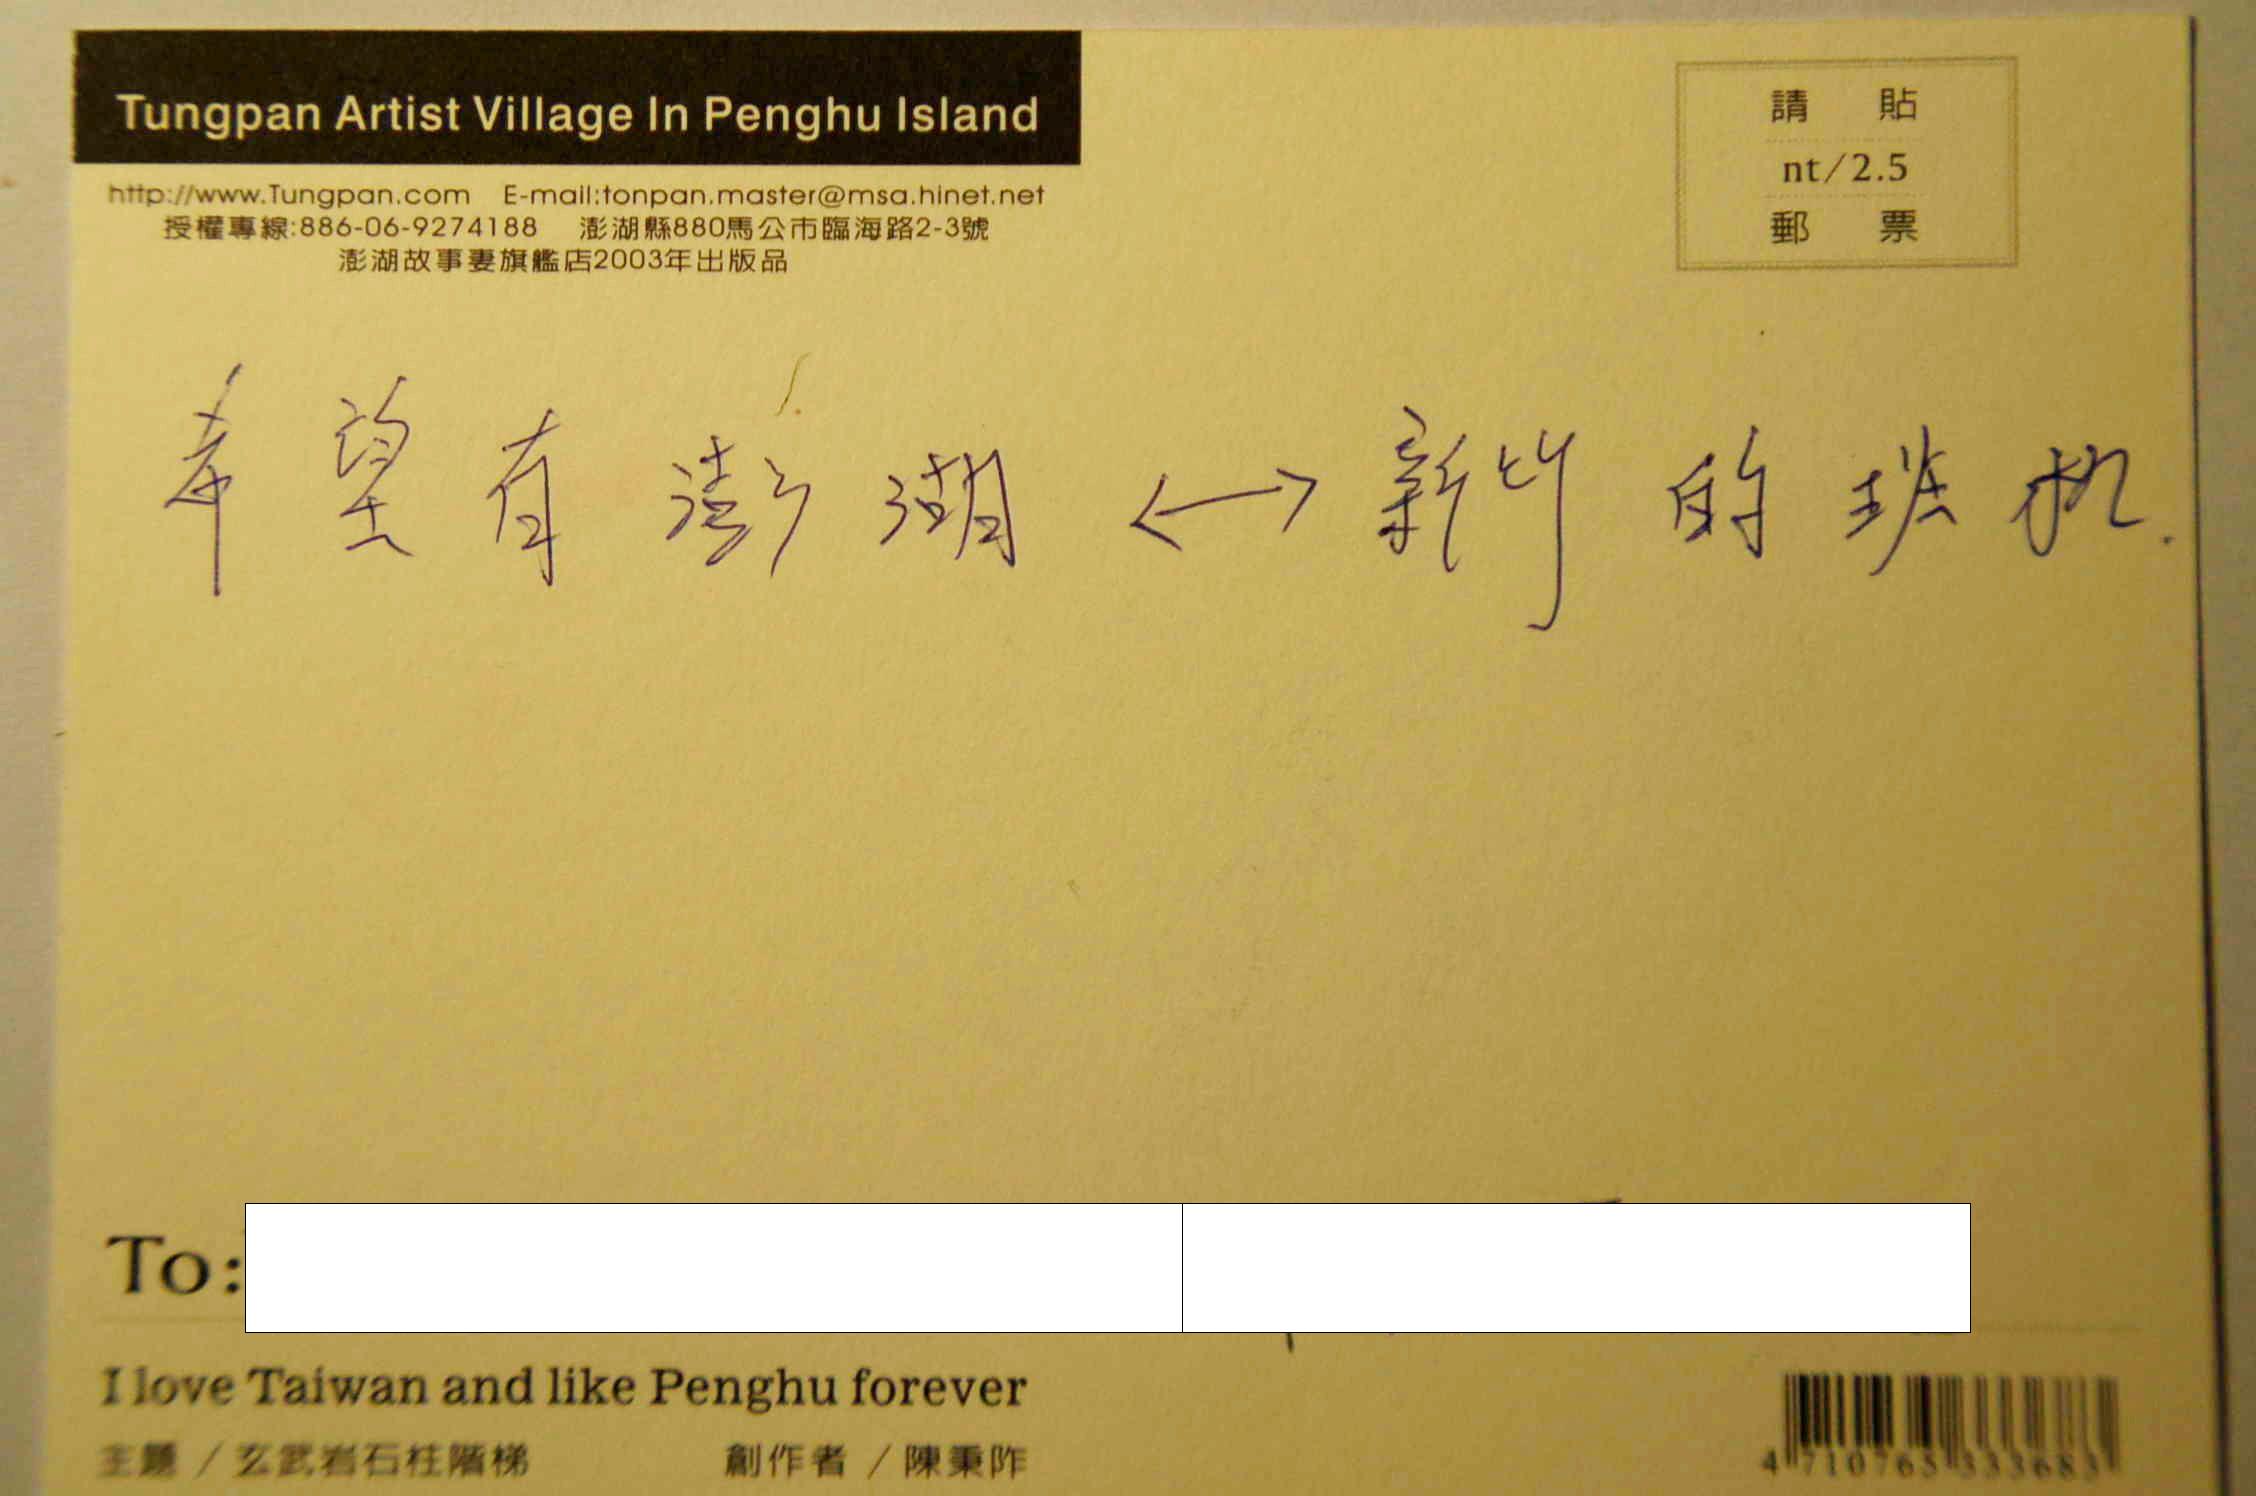 Tungpan Artist Village In Penghu Island
http://www.Tungpan.com E-mail:tonpan.master@msa.hinet.net
授權專線:886-06-9274188 澎湖縣880馬公市臨海路2-3號
澎湖故事妻旗艦店2003年出版品
請 貼
nt/2.5
郵 票
希望有澎湖 ←→ 新竹的班机.
To:
I love Taiwan and like Penghu forever
主題 / 玄武岩石柱階梯 創作者 / 陳秉阼
4 710765 333683